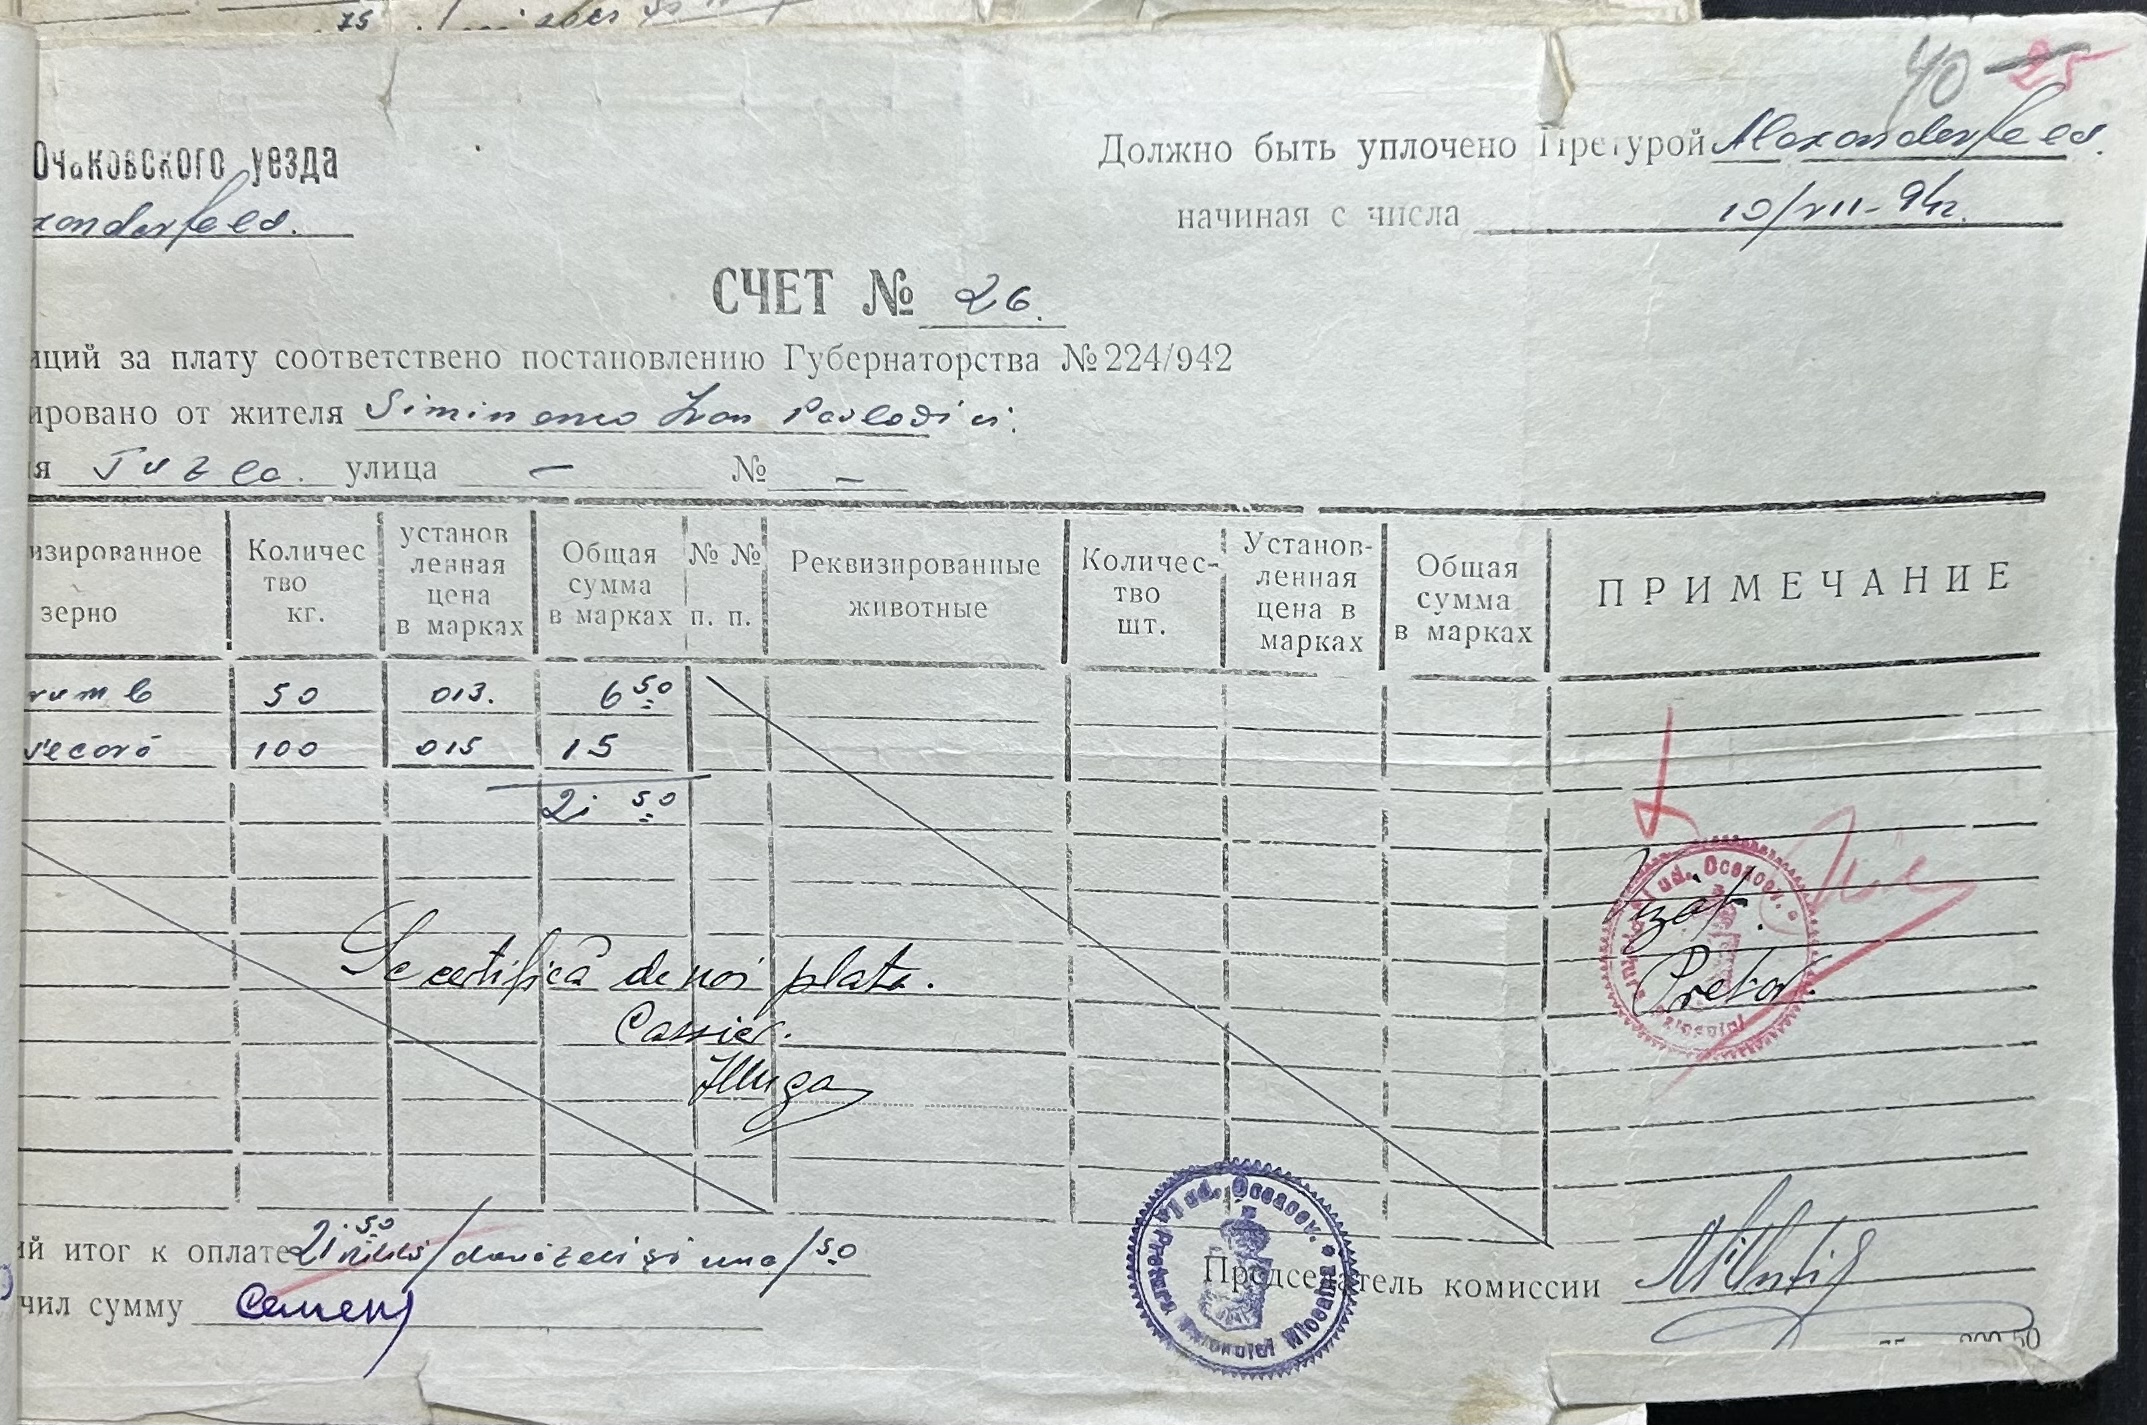 75
40 25
Очаковского уезда
Должно быть уплочено Претурой Alexanderfeld.
xanderfeld.
начиная с числа 10/VII-942.
СЧЕТ № 26.
иций за плату соответствено постановлению Губернаторства № 224/942
ировано от жителя Siminenco Ivan Pavlovici.
ия Tuzla. улица — № —
изированное зерно
Количес тво кг.
установ ленная цена в марках
Общая сумма в марках
№ № п. п.
Реквизированные животные
Количес- тво шт.
Установ- ленная цена в марках
Общая сумма в марках
ПРИМЕЧАНИЕ
rumb 50 013. 6 50
secară 100 015 15
21 50
Vizat.
Pretor.
Se certifică de noi plata.
Cassier.
Preturа ud. Oceacov.
ий итог к оплате 21 50 /douăzeci și una/50
Председатель комиссии
чил сумму
50